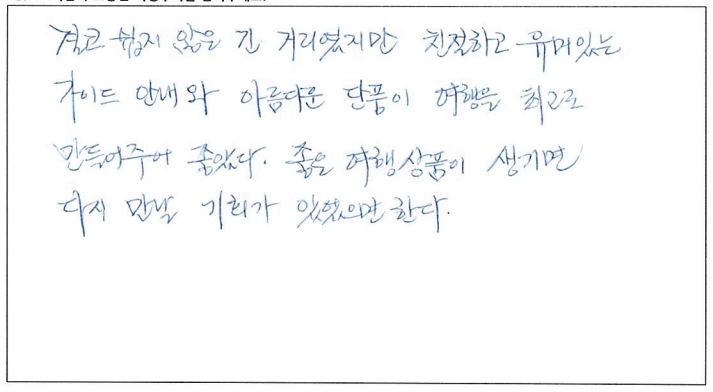 결코 쉽지 않은 긴 거리였지만 친절하고 유머있는
가이드 안내와 아름다운 단풍이 여행을 최고로
만들어주어 좋았다. 좋은 여행상품이 생기면
다시 만날 기회가 있었으면 한다.